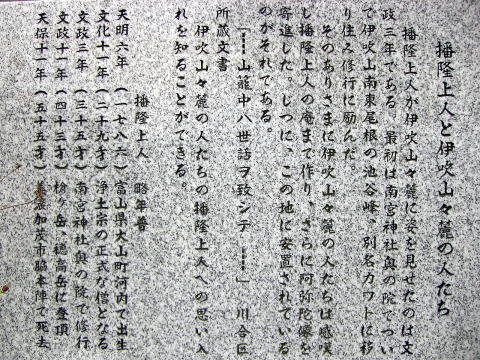 播隆上人と伊吹山々麓の人たち
播隆上人が伊吹山々麓に姿を見せたのは文
政三年である。最初は南宮神社奥の院でつい
で伊吹山南東尾根の池谷峰、別名カワトに移
り住み修行に励んだ。
そのありさまに伊吹山々麓の人たちは感嘆
し播隆上人の庵まで作り、さらに阿弥陀像を
寄進した。じつに、この地に安置されている
のがそれである。
「┅┅山籠中八世訪ヲ致シテ┅┅」川合区
所蔵文書
伊吹山々麓の人たちの播隆上人への思い入
れを知ることができる。
播隆上人 略年譜
天明六年(一七八六)富山県大山町河内で出生
文化十一年(二十九才)浄土宗の正式な僧となる
文政三年(三十五才)南宮神社奥の院で修行
文政十一年(四十三才)槍ヶ岳、穂高岳に登頂
天保十一年(五十五才)美濃加茂市脇本陣で死去